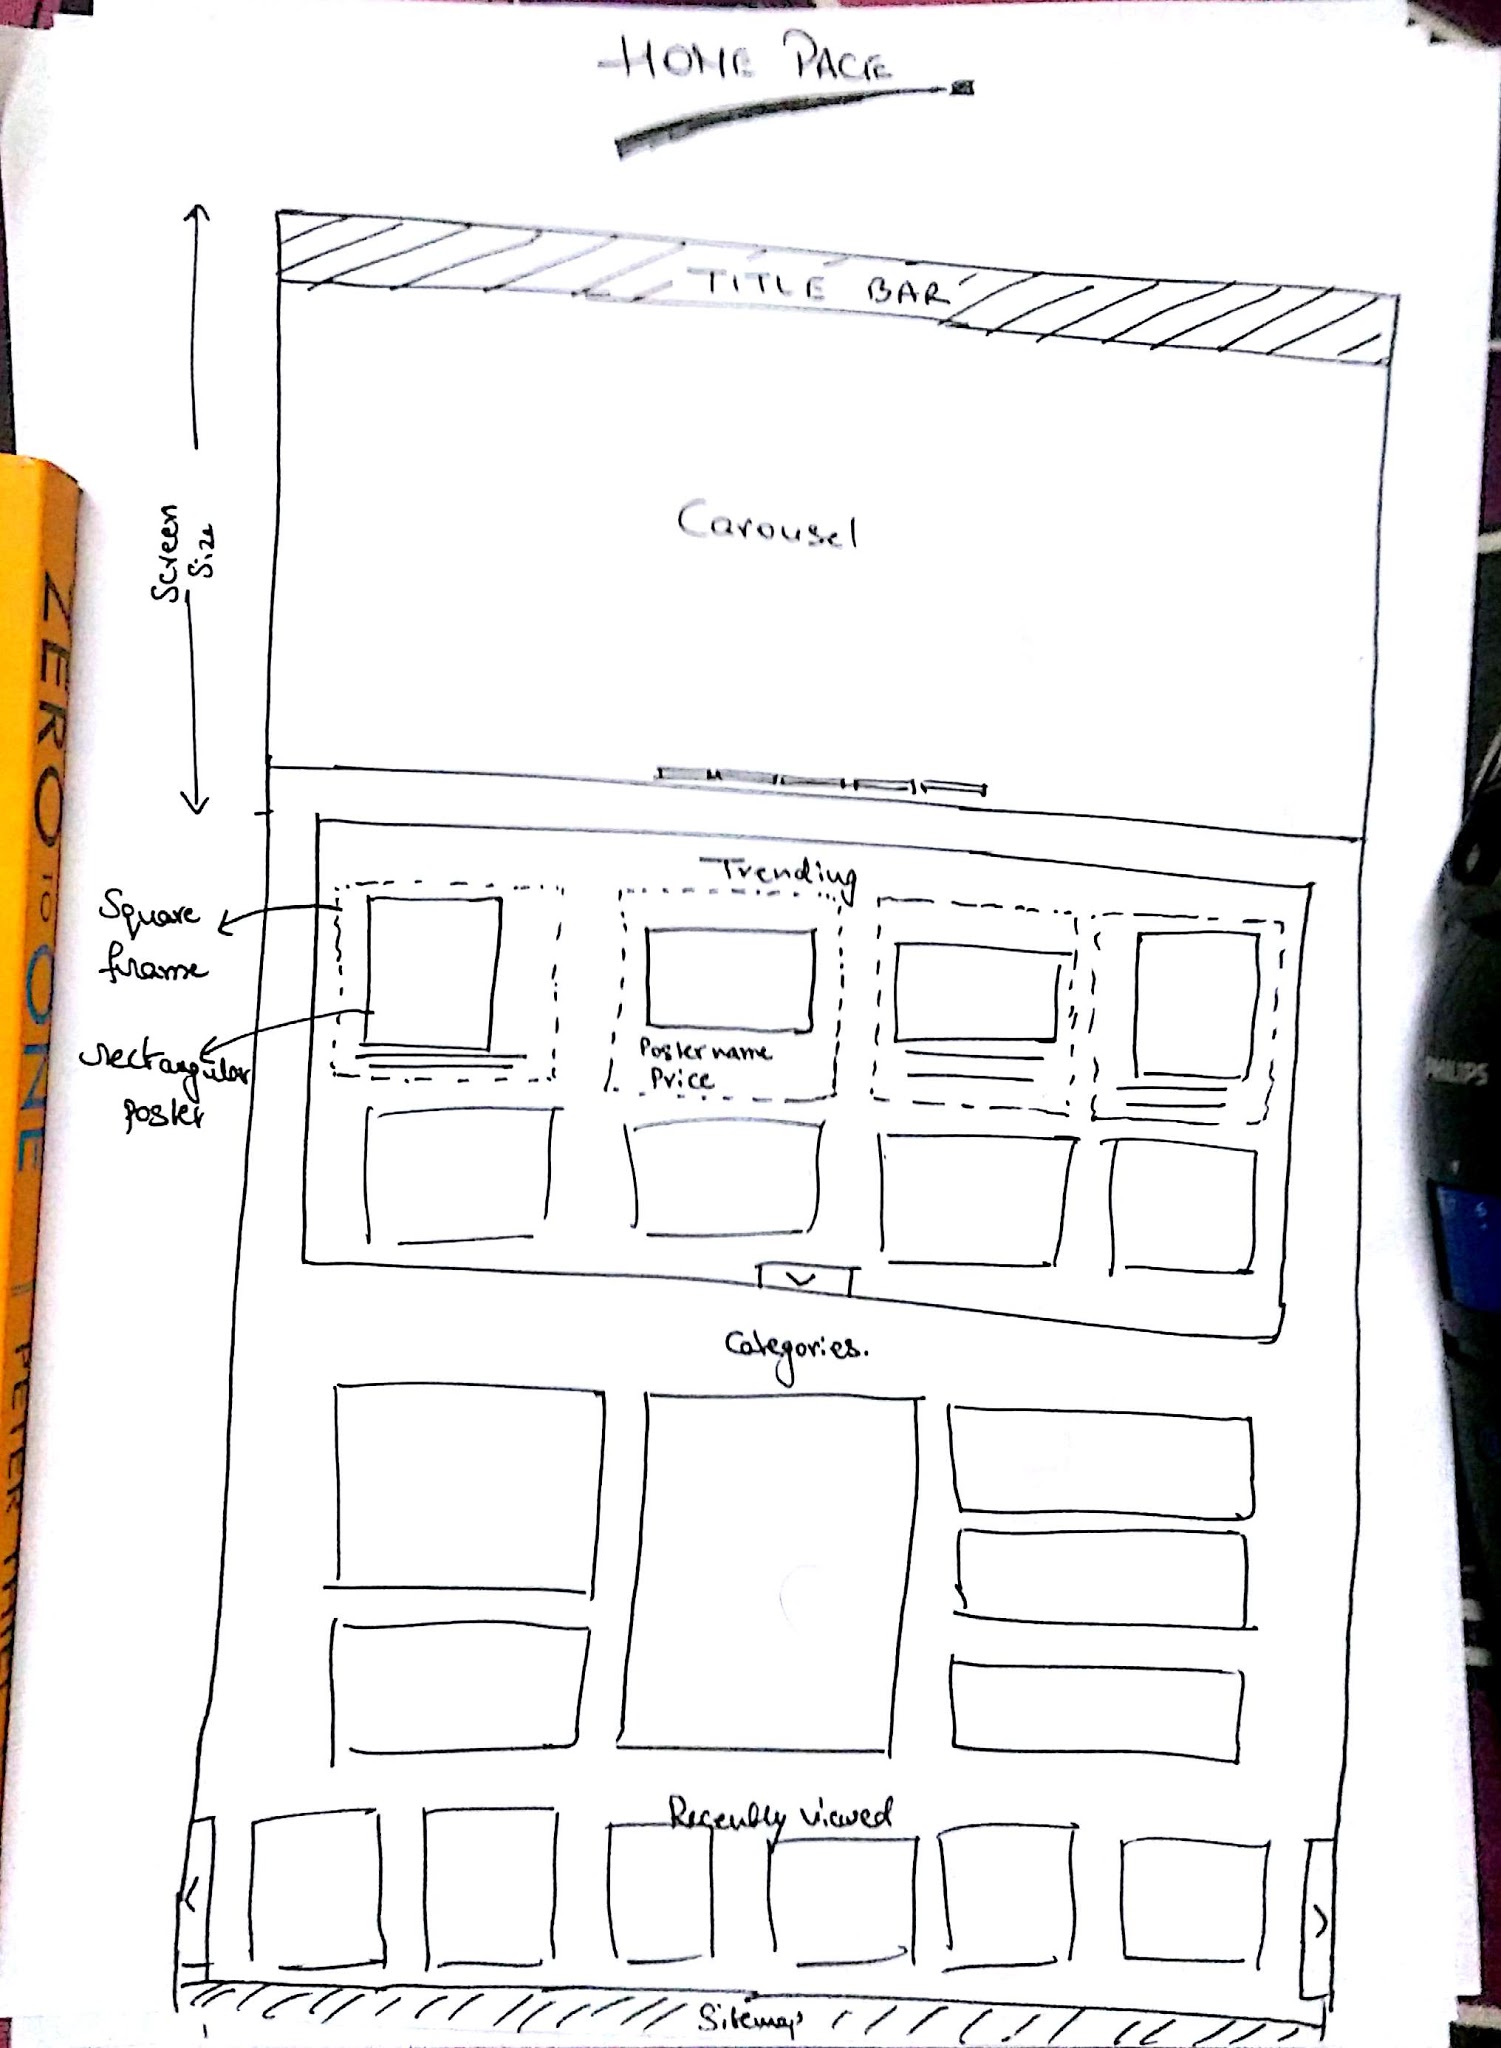 HOME PAGE
TITLE BAR
Carousel
Screen
Size
Trending
Square
frame
rectangular
poster
Poster name
Price
Categories.
Recently viewed
Sitemap
ZERO TO ONE | PETER
PHILIPS